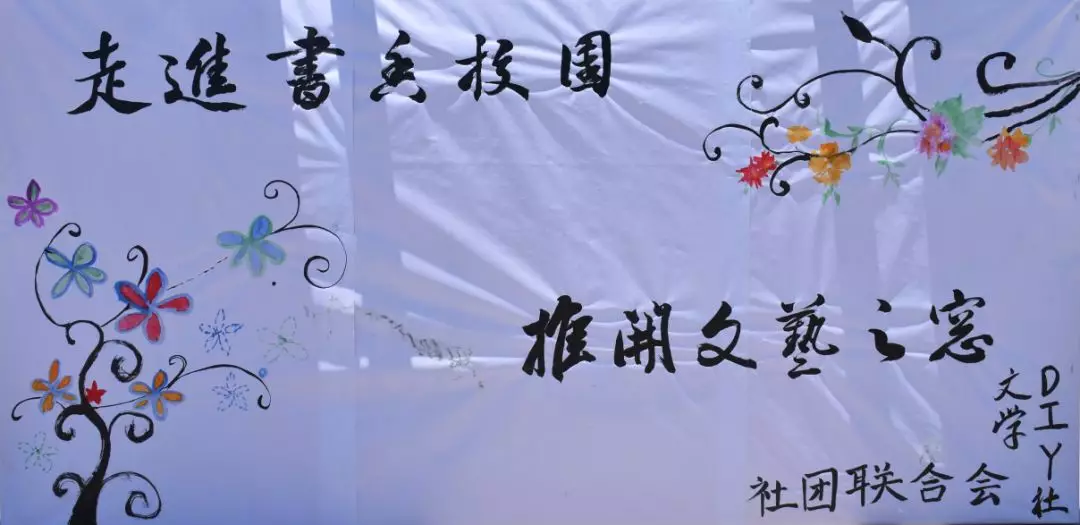 走進書香校園
推開文藝之窓
DIY社
文学
社团联合会